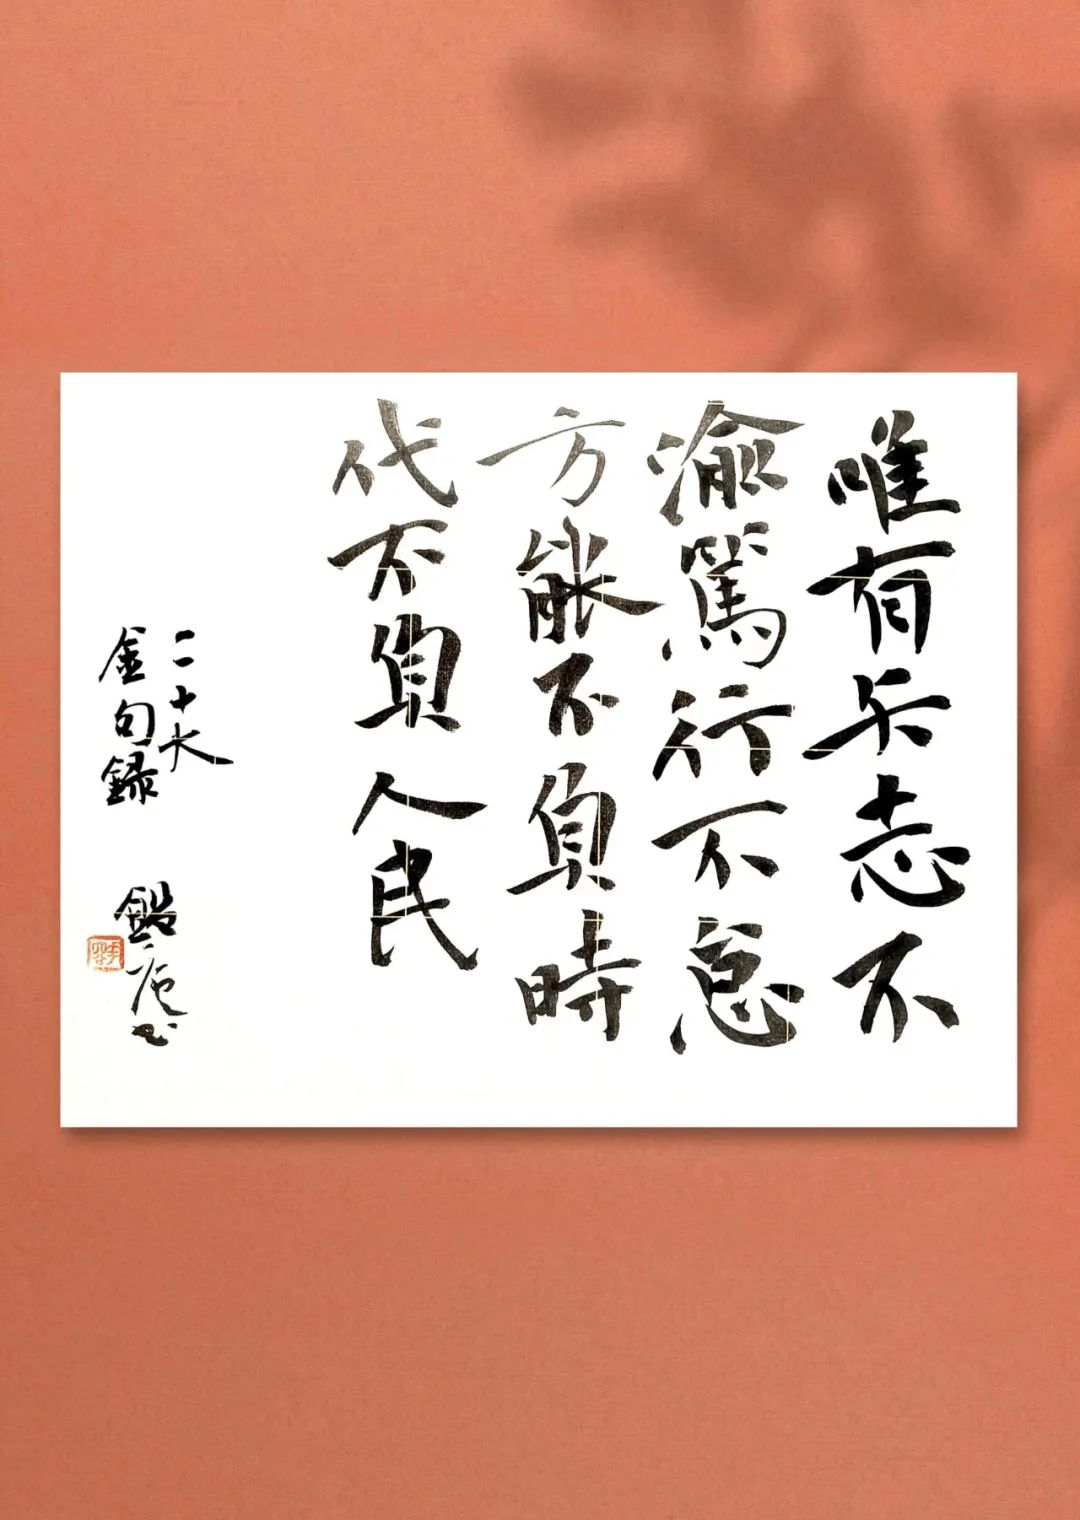 唯有矢志不
渝篤行不怠
方能不負時
代不負人民
二十大
金句録